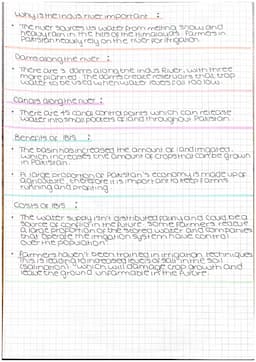 Why is the indus river important :
• The river sources its water from melting snow and
heavy rain in the hills of the Himalayas. Farmers in
Pakistan heavily rely on the river for irrigation.
Dams along the river :
• There are 3 dams along the Indus River, with three
more planned. The dams create reservoirs that trap
water to be used when water levels fall too low.
Canals along the river :
• There are 45 canal control points which can release
water into small pockets of land throughout Pakistan.
Benefits of IBIS :
• The basin has increased the amount of land irrigated,
which increases the amount of crops that can be grown
in Pakistan.
• A large proportion of Pakistan's economy is made up of
agriculture, therefore it is important to keep farms
running and profiting.
Costs of IBIS :
• The water supply isn't distributed fairly and could be a
source of conflict in the future. Some farmers receive
a large proportion of the stored water and companies
that operate the irrigation system have control
over the population.
• Farmers haven't been trained in irrigation techniques.
This is leading to increased levels of salt in the soil
(salination) - which will damage crop growth and
leave the ground unfarmable in the future.